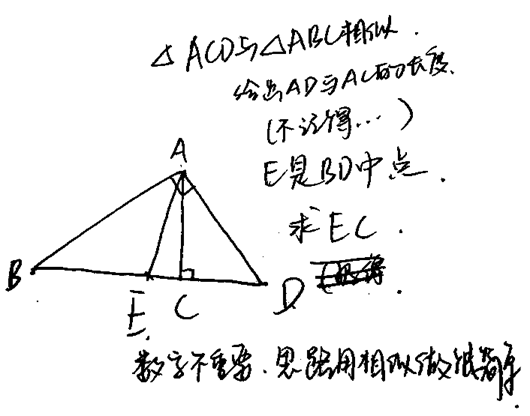 △ACD与△ABC相似.
给出AD与AC的长度.
(不记得…)
E是BD中点.
求EC.
A
B
E
C
D
数字不重要.思路用相似做很简单.